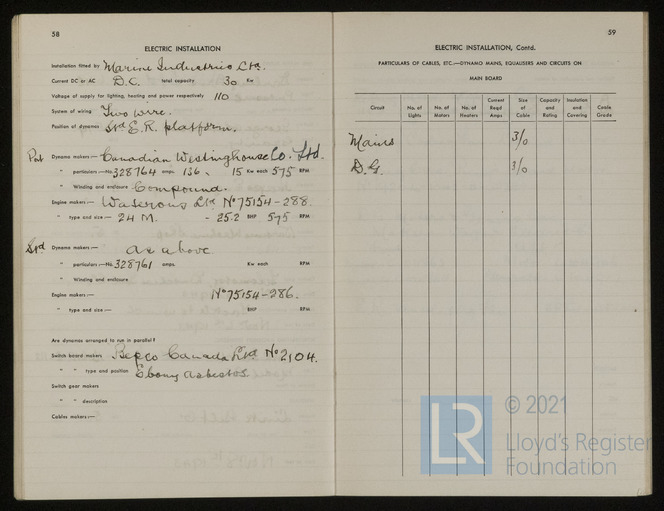 58
ELECTRIC INSTALLATION
Installation fitted by Marine Industries Ltd.
Current DC or AC D.C. total capacity 30 Kw
Voltage of supply for lighting, heating and power respectively 110
System of wiring Two wire.
Position of dynamos Stbd E.R. platform.
Port Dynamo makers:— Canadian Westinghouse Co. Ltd.
" particulars:—No. 328764 amps. 136 15 Kw each 575 RPM
" Winding and enclosure Compound.
Engine makers:— Waterous Ltd No 75154-288.
" type and size:— 24 M. - 25.2 BHP 575 RPM
Stbd Dynamo makers:— as above
" particulars:—No. 328761 amps. Kw each RPM
" Winding and enclosure
Engine makers:— No 75154-286.
" type and size:— BHP RPM
Are dynamos arranged to run in parallel?
Switch board makers Bepco Canada Ltd No 2104.
" " type and position Ebony asbestos
Switch gear makers
" " description
Cables makers:—
59
ELECTRIC INSTALLATION, Contd.
PARTICULARS OF CABLES, ETC.—DYNAMO MAINS, EQUALISERS AND CIRCUITS ON
MAIN BOARD
Circuit No. of Lights No. of Motors No. of Heaters Current Reqd Amps Size of Cable Capacity and Rating Insulation and Covering Cable Grade
Mains 3/0
D.G. 3/0
LR
© 2021
Lloyd's Register
Foundation